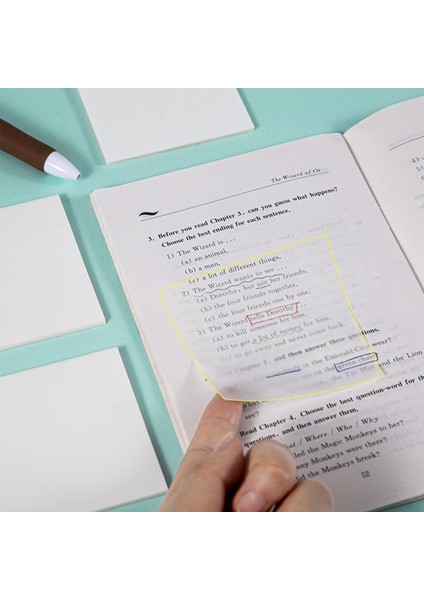 The Wizard of Oz
3. Before you read Chapter 3, can you guess what happens?
Choose the best ending for each sentence.
1) The Wizard is ...
(a) an animal,
(b) a man,
(c) a lot of different things,
2) The Wizard wants to see ...
(a) Dorothy, but not her friends,
(b) the four friends together,
(c) the four friends one by one,
3) The Wizard tells Dorothy ...
(a) to kill someone for him,
(b) to get a lot of money for him,
(c) to go away and never come back.
Chapter 3, and then answer these questions,
in the Emerald City wear?
on the green chair?
the Tin Man and the Lion
see?
Read Chapter 4. Choose the best question-word for the
questions, and then answer them.
What / Where / Who / Why
led the Magic Monkeys to her?
any Monkeys were there?
did the Monkeys break?
52
4)
5)